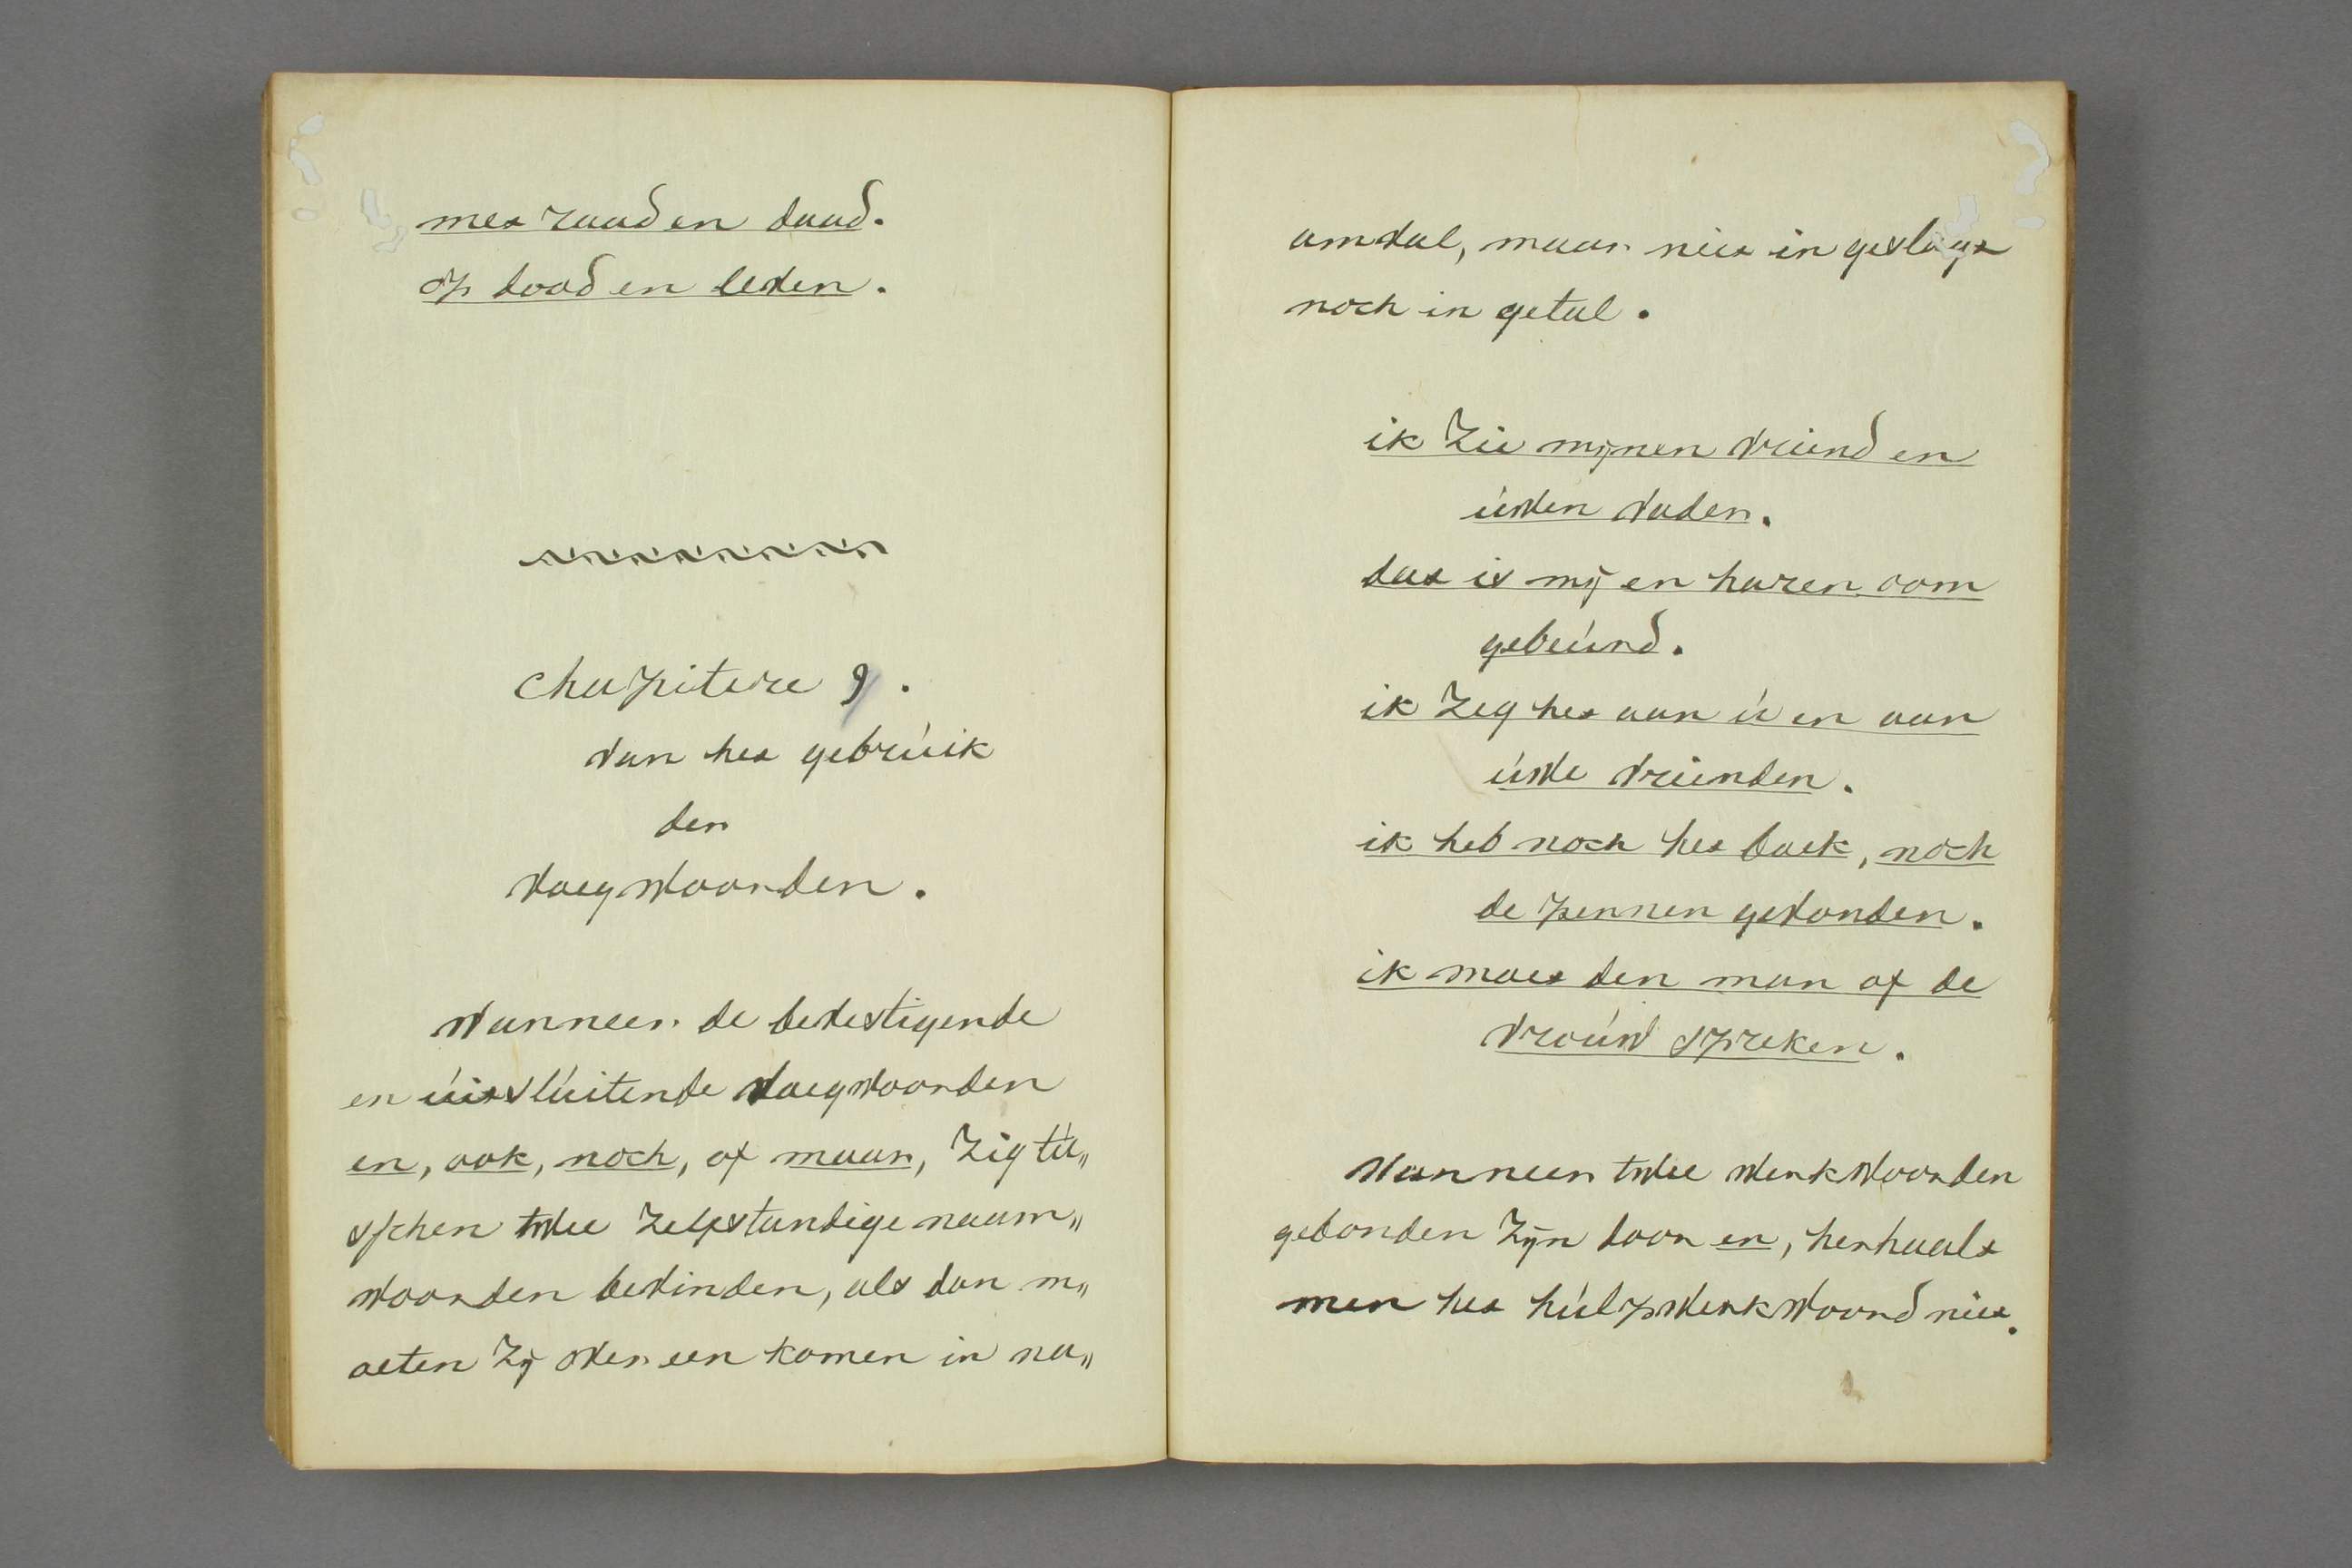 met raad en daad.
op dood en leven.
chapiter 9.
van het gebrúik
der
voegwoorden.
wanneer de bevestigende
en úitslúitende voegwoorden
en, ook, noch, of maar, zig tú„
sschen twee zelfstandige naam„
woorden bevinden, als dan m„
oeten zij over een komen in na„
amval, maar niet in geslagt
noch in getal.
ik zie mijnen vriend en
úwen vader.
dat is mij en haren oom
gebeúrd.
ik zeg het aan ú en aan
úwe vrienden.
ik heb noch het boek, noch
de pennen gevonden.
ik moet den man of de
vroúw spreken.
wanneer twee werkwoorden
gebonden zijn door en, herhaalt
men het húlpwerkwoord niet.